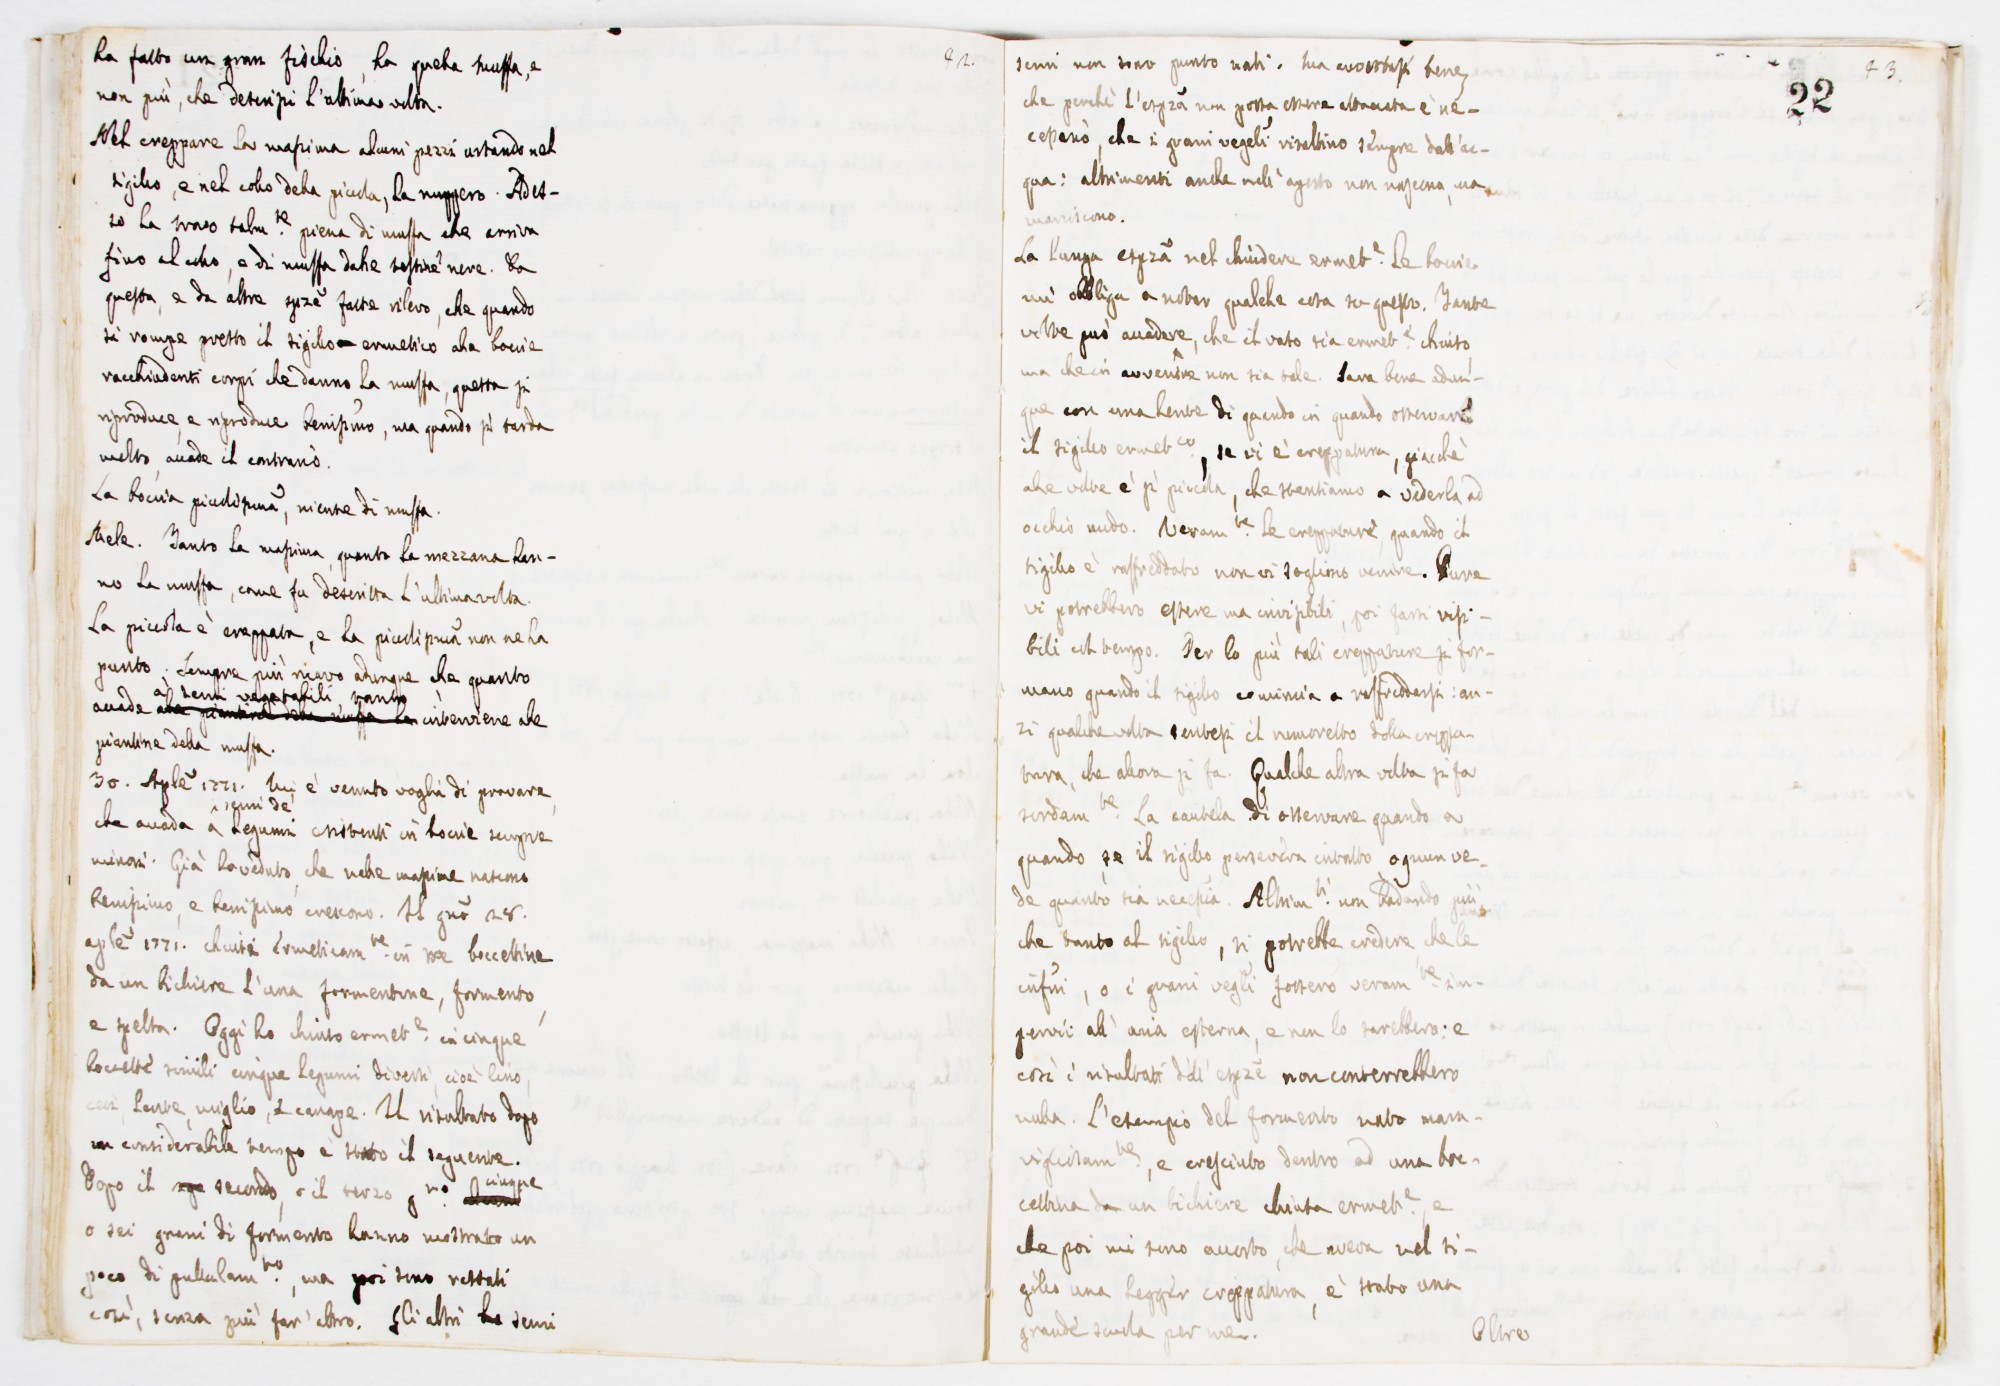 42.
ha fatto un gran fischio, ha quella muffa, e
non più, che descrissi l'ultima volta.
Nel creppare la massima alcuni pezzi urtando nel
sigillo, e nel collo della piccola, la ruppero. Ades-
so ha
piena di muffa che arriva
fino al collo, e di muffa dalle testine nere. Da
questa, e da altre spze fatte rilevo, che quando
si rompe presto il sigillo ermetico alla boccie
racchiudenti corpi che danno la muffa, questa si
riproduce, e riproduce benissimo, ma quando si tarda
molto, accade il contrario.
La boccia piccolissima, niente di muffa.
Mele. Tanto la massima, quanto la mezzana han-
no la muffa, come fu descritta l'ultima volta.
La piccola è creppata, e la piccolissima non ne ha
punto. Sempre più ricavo adunque che quanto
a' semi vegetabili tanto
accade alle piantine della muffa interviene alle
piantine della muffa.
30. Aple 1771. Mi è venuto voglia di provare,
semi de'
che accada a legumi esistenti in boccie sempre
minori. Già ho veduto, che nelle massime nascono
benissimo, e benissimo crescono. Il gno 28.
aple 1771. chiusi ermeticam.te in tre boccettine
da un bichiere l'una formentone, formento,
e spelta. Oggi ho chiuso ermet.e in cinque
boccette simili cinque legumi diversi, cioè lino,
ceci, lente, miglio, e canape. Il risultato dopo
un considerabile tempo è stato il seguente.
Dopo il secondo, o il terzo g.no cinque
o sei grani di formento hanno mostrato un
poco di pullulam.to, ma poi sono restati
così, senza più far altro. Gli altri semi
43.
22
semi non sono punto nati. Ma avvertasi bene,
che perchè l'espza non possa essere eccettuata è ne-
cessario, che i grani vegeli risaltino sempre dall'ac-
qua: altrimenti anche nell'aperto non nascono, ma
marciscono.
La lunga espza nel chiudere ermet.e le boccie
mi obbliga a notar qualche cosa su questo. Tante
volte può accadere, che il vaso sia ermet.e chiuso
ma che in avvenire non sia tale. Sarà bene adun-
que con una lente di quando in quando osservare
il sigillo ermet.co, se vi è creppatura, giacchè
alle volte è sì piccola, che stentiamo a vederla ad
occhio nudo. Veram.te le creppature, quando il
sigillo è raffreddato non vi sogliono venire. Pure
vi potrebbero essere ma invisibili, poi farsi visi-
bili col tempo. Per lo più tali creppature si for-
mano quando il sigillo comincia a raffreddarsi: an-
zi qualche volta sentesi il rumoretto della creppa-
tura, che allora si fa. Qualche altra volta si fa
sordam.te. La cautela di osservare quando a
quando, se il sigillo persevera intatto ognun ve-
de quanto sia necessia. Altrim.ti non badando più
che tanto al sigillo, si potrebbe credere, che le
infusi, o i grani vegli fossero veram.te im-
pervii all'aria esterna, e non lo sarebbero: e
così i risultati dell'espze non conterrebbero
nulla. L'esempio del formento nato mara-
vigliosam.te, e cresciuto dentro ad una boc-
cettina da un bichiere chiusa ermet.e, e
che poi mi sono accorto, che aveva nel si-
gillo una legger creppatura, è stato una
grande scuola per me.
Oltre